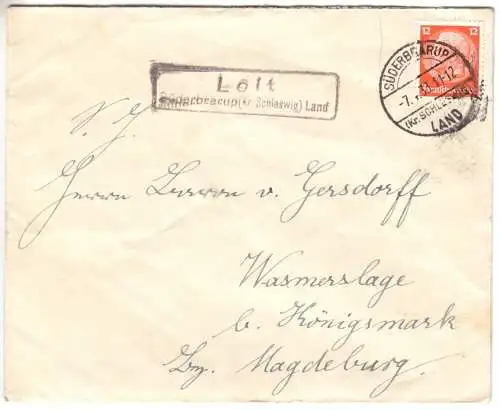 Loit
Süderbrarup (Kr. Schleswig) Land
12 12
SÜDERBRARUP
-7. 11-12
(Kr. SCHLESWIG)
LAND
S. H.
Herrn Baron v. Gersdorff
Wasmerslage
b. Königsmark
Bz. Magdeburg.